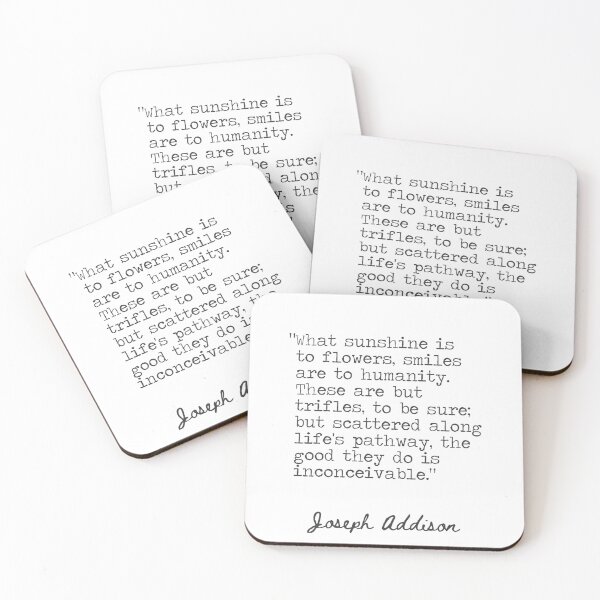 "What sunshine is
to flowers, smiles
are to humanity.
These are but
trifles, to be sure;
but scattered along
the
is
"What sunshine is
to flowers, smiles
are to humanity.
These are but
trifles, to be sure;
but scattered along
life's pathway, the
good they do is
inconceivable."
"What sunshine is
to flowers, smiles
are to humanity.
These are but
trifles, to be sure;
but scattered along
life's pathway, the
good they do is
inconceivable
Joseph A
"What sunshine is
to flowers, smiles
are to humanity.
These are but
trifles, to be sure;
but scattered along
life's pathway, the
good they do is
inconceivable."
Joseph Addison